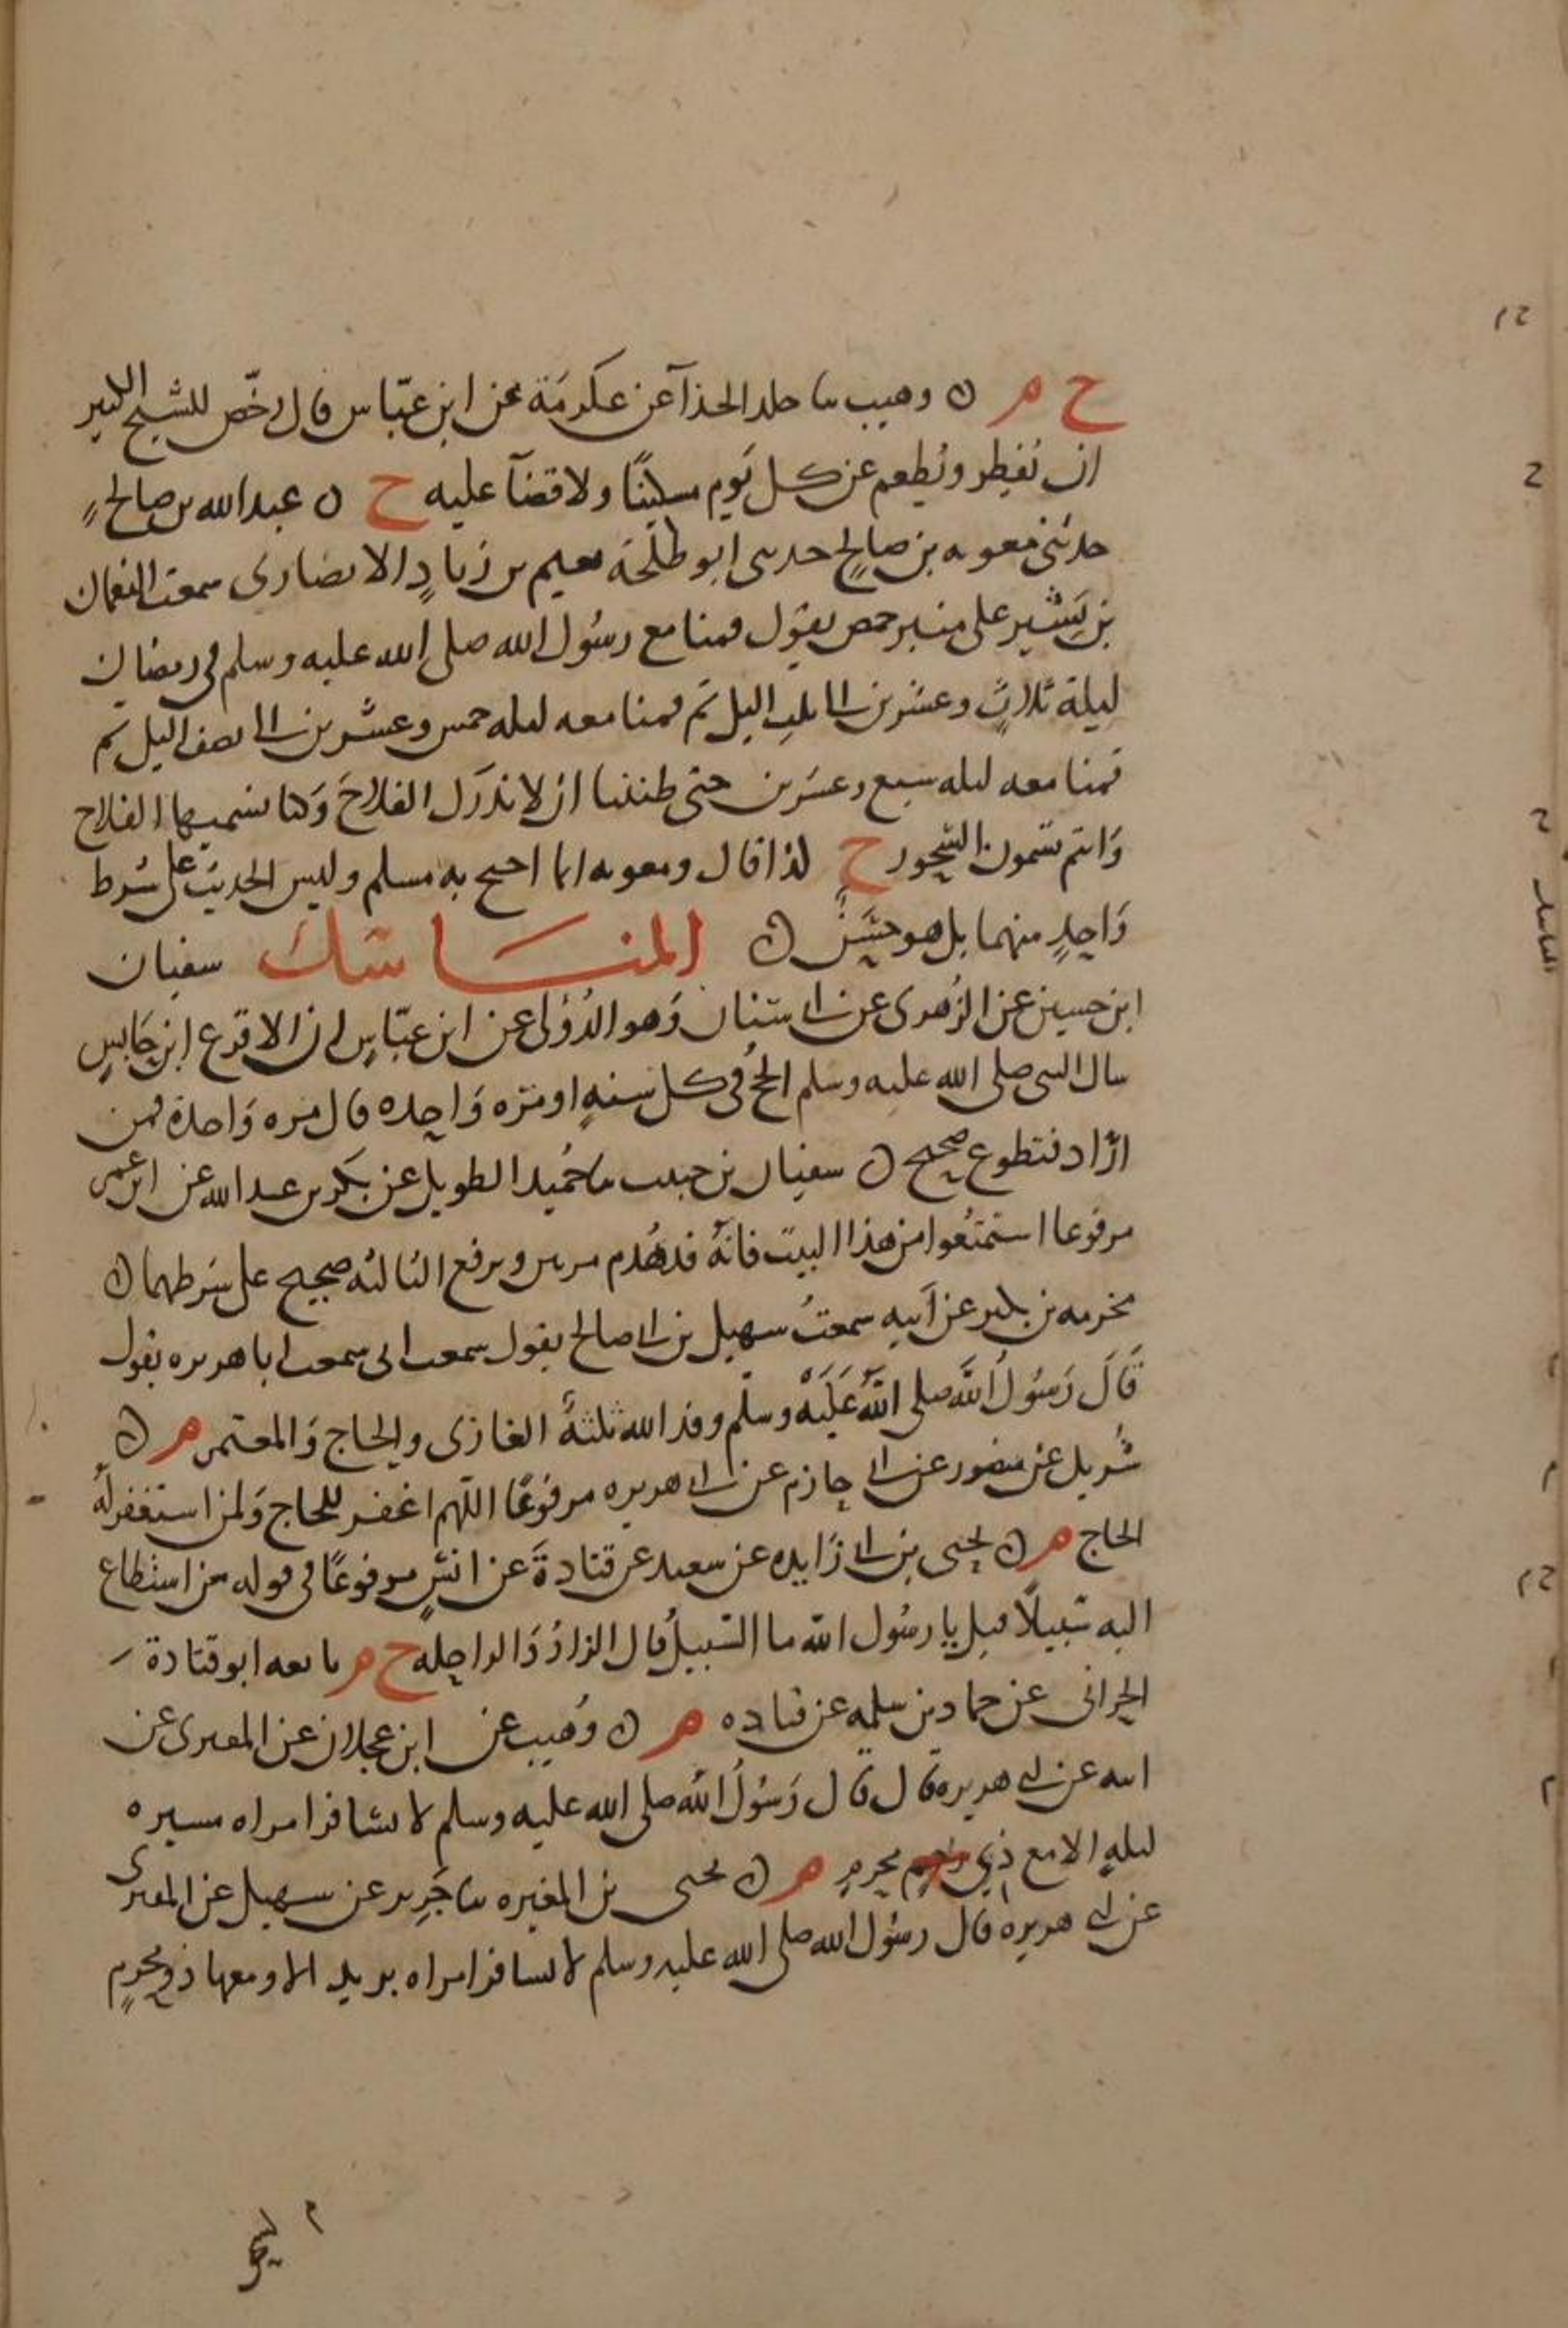 خ م ن وهيب سا خلد الحذآ عن عكرمة عن ابن عبّاس قال رخّص للشيخ الكبير
ان يُفطِر ويُطعم عن كل يَوم مسكينًا ولا قضآ عليه خ ن عبد الله بن صالحٍ
حدثنى معويه بن صالحٍ حدثنى ابو طلحة نعيم بن زيادٍ الانصارى سمعت النعمان
بن بَشير على منبر حمص يقول قمنا مع رسُول الله صلى الله عليه وسلم فى رمضان
ليلة ثلاثٍ وعشرين الى ثلث اليل ثم قمنا معه ليله خمس وعشرين الى نصف اليل ثم
قمنا معه ليله سبع وعشرين حتى ظننا ان لا ندرك الفلاح وَكنا نسميها الفلاح
وَانتم تسمون السّحور خ كذا قال ومعويه انما احتج به مسلم وليس الحديث على شرط
وَاحدٍ منهما بل هو حسَن ن المناسك سفيان
ابن حسين عن الزُهرى عن ابى سنان وَهو الدُؤلى عن ابن عبّاسٍ ان الاقرع ابن حَابسٍ
سال النبى صلى الله عليه وسلم الحجُ فى كل سنهٍ او مرّه وَاحِده قال مره وَاحدة فمن
ارَاد فتطوع صحيح ن سفيان بن حبيب سا حُميد الطويل عن بكر بن عبد الله عن ابن عمر
مرفوعا استمتعُوا من هذا البيت فانهُ قد هُدم مرتين ويرفع الثالثه صحيح على شرطهما ن
مخرمه بن بكير عن اَبيه سمعتُ سهيل بن ابى صالح يقول سمعت ابى سمعت ابا هريره يقول
قَالَ رَسُولُ اللَّه صلى اللَّه عَلَيْه وسلّم وفد الله ثلثةُ الغازى والحاج وَالمعتمر م ن
شُريك عن منصور عن ابى حازم عن ابى هريره مرفوعًا اللّهم اغفر للحاج وَلمن استغفر لهُ
الحاج م ن يحيى بن ابى زَايده عن سعيد عن قتادةَ عن انسٍ مرفوعًا فى قوله من استطاع
اليه سَبيلًا قيل يا رسُول الله ما السّبيلُ قال الزادُ وَالراحِله خ م تابعه ابو قتادة
الحرانى عن حماد بن سلمه عن قتاده م ن وُهيب عن ابن عجلان عن المقبرى عن
ابيه عن ابى هريره قال قال رَسُولُ اللّه صلى الله عليه وسلم لا تسافر امراه مسيره
ليلهٍ الا مع ذِي محرمٍ م ن يحيى بن المغيره سا جَرير عن سهيل عن المقبرى
عن ابى هريره قال رسُول الله صلى الله عليه وسلم لا تسافر امراه بريد الا ومعها ذو محرمٍ